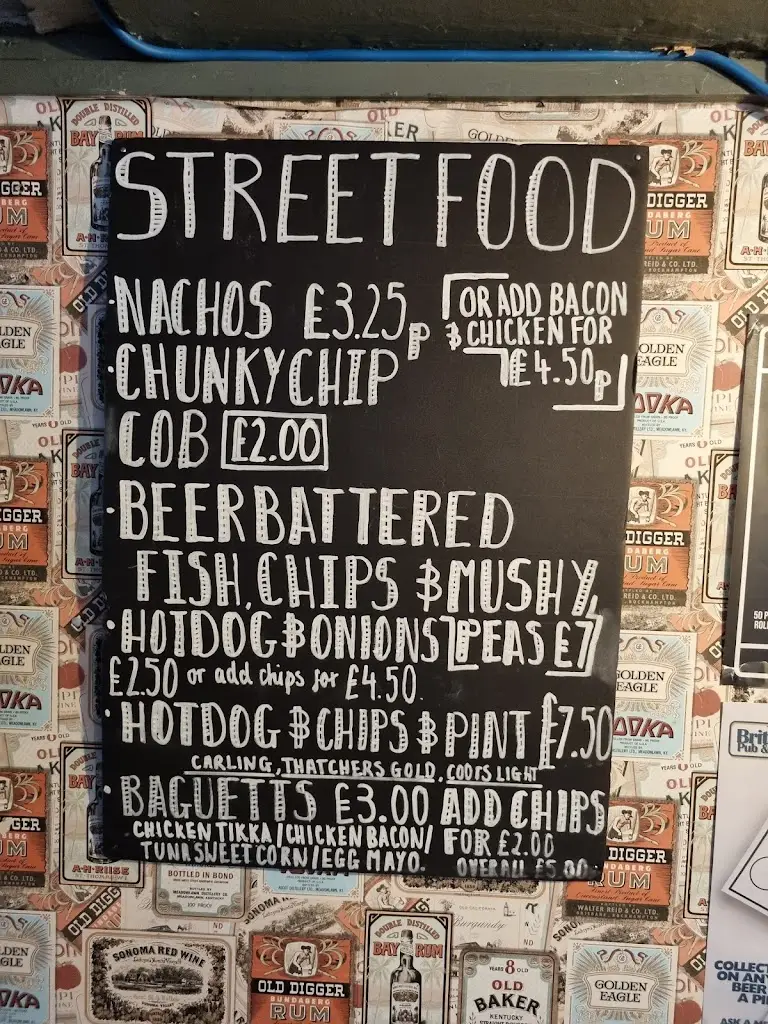 STREET FOOD
· NACHOS £3.25p
OR ADD BACON
& CHICKEN FOR
£4.50p
· CHUNKY CHIP
COB £2.00
· BEER BATTERED
FISH, CHIPS & MUSHY
PEAS £7
· HOTDOG & ONIONS
£2.50 or add chips for £4.50.
· HOTDOG & CHIPS & PINT £7.50
CARLING, THATCHERS GOLD, COORS LIGHT
· BAGUETTS £3.00 ADD CHIPS
FOR £2.00
OVERALL £5.00
CHICKEN TIKKA/CHICKEN BACON/
TUNA SWEETCORN/EGG MAYO.
DOUBLE DISTILLED
BAY RUM
OLD DIGGER
BUNDABERG
RUM
GOLDEN
EAGLE
VODKA
WALTER REID & CO. LTD.
BOTTLED IN BOND
SONOMA RED WINE
DOUBLE DISTILLED
BAY RUM
OLD DIGGER
BUNDABERG
RUM
YEARS 8 OLD
OLD
BAKER
KENTUCKY
GOLDEN
EAGLE
Brit
Pub &
50 P
ROLL
COLLEC
ON ANY
BEER
A PI
ASK A